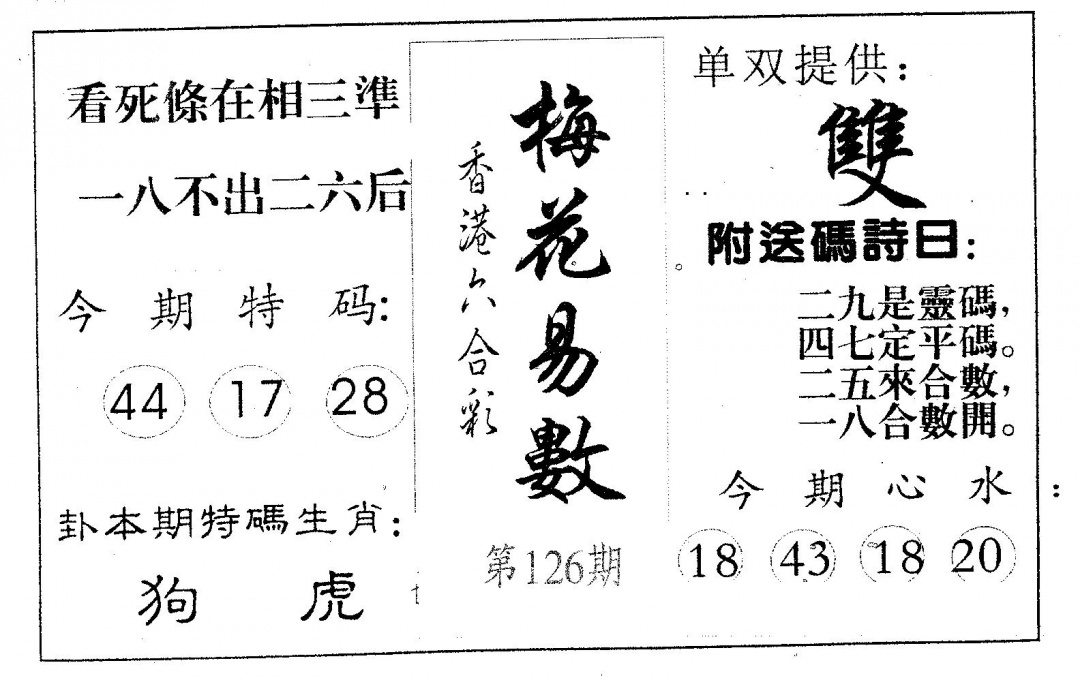 看死條在相三準
一八不出二六后
今期特码:
44 17 28
卦本期特碼生肖:
狗 虎
香港六合彩
梅花易數
第126期
单双提供:
雙
附送碼詩曰:
二九是靈碼,
四七定平碼。
二五來合數,
一八合數開。
今期心水:
18 43 18 20